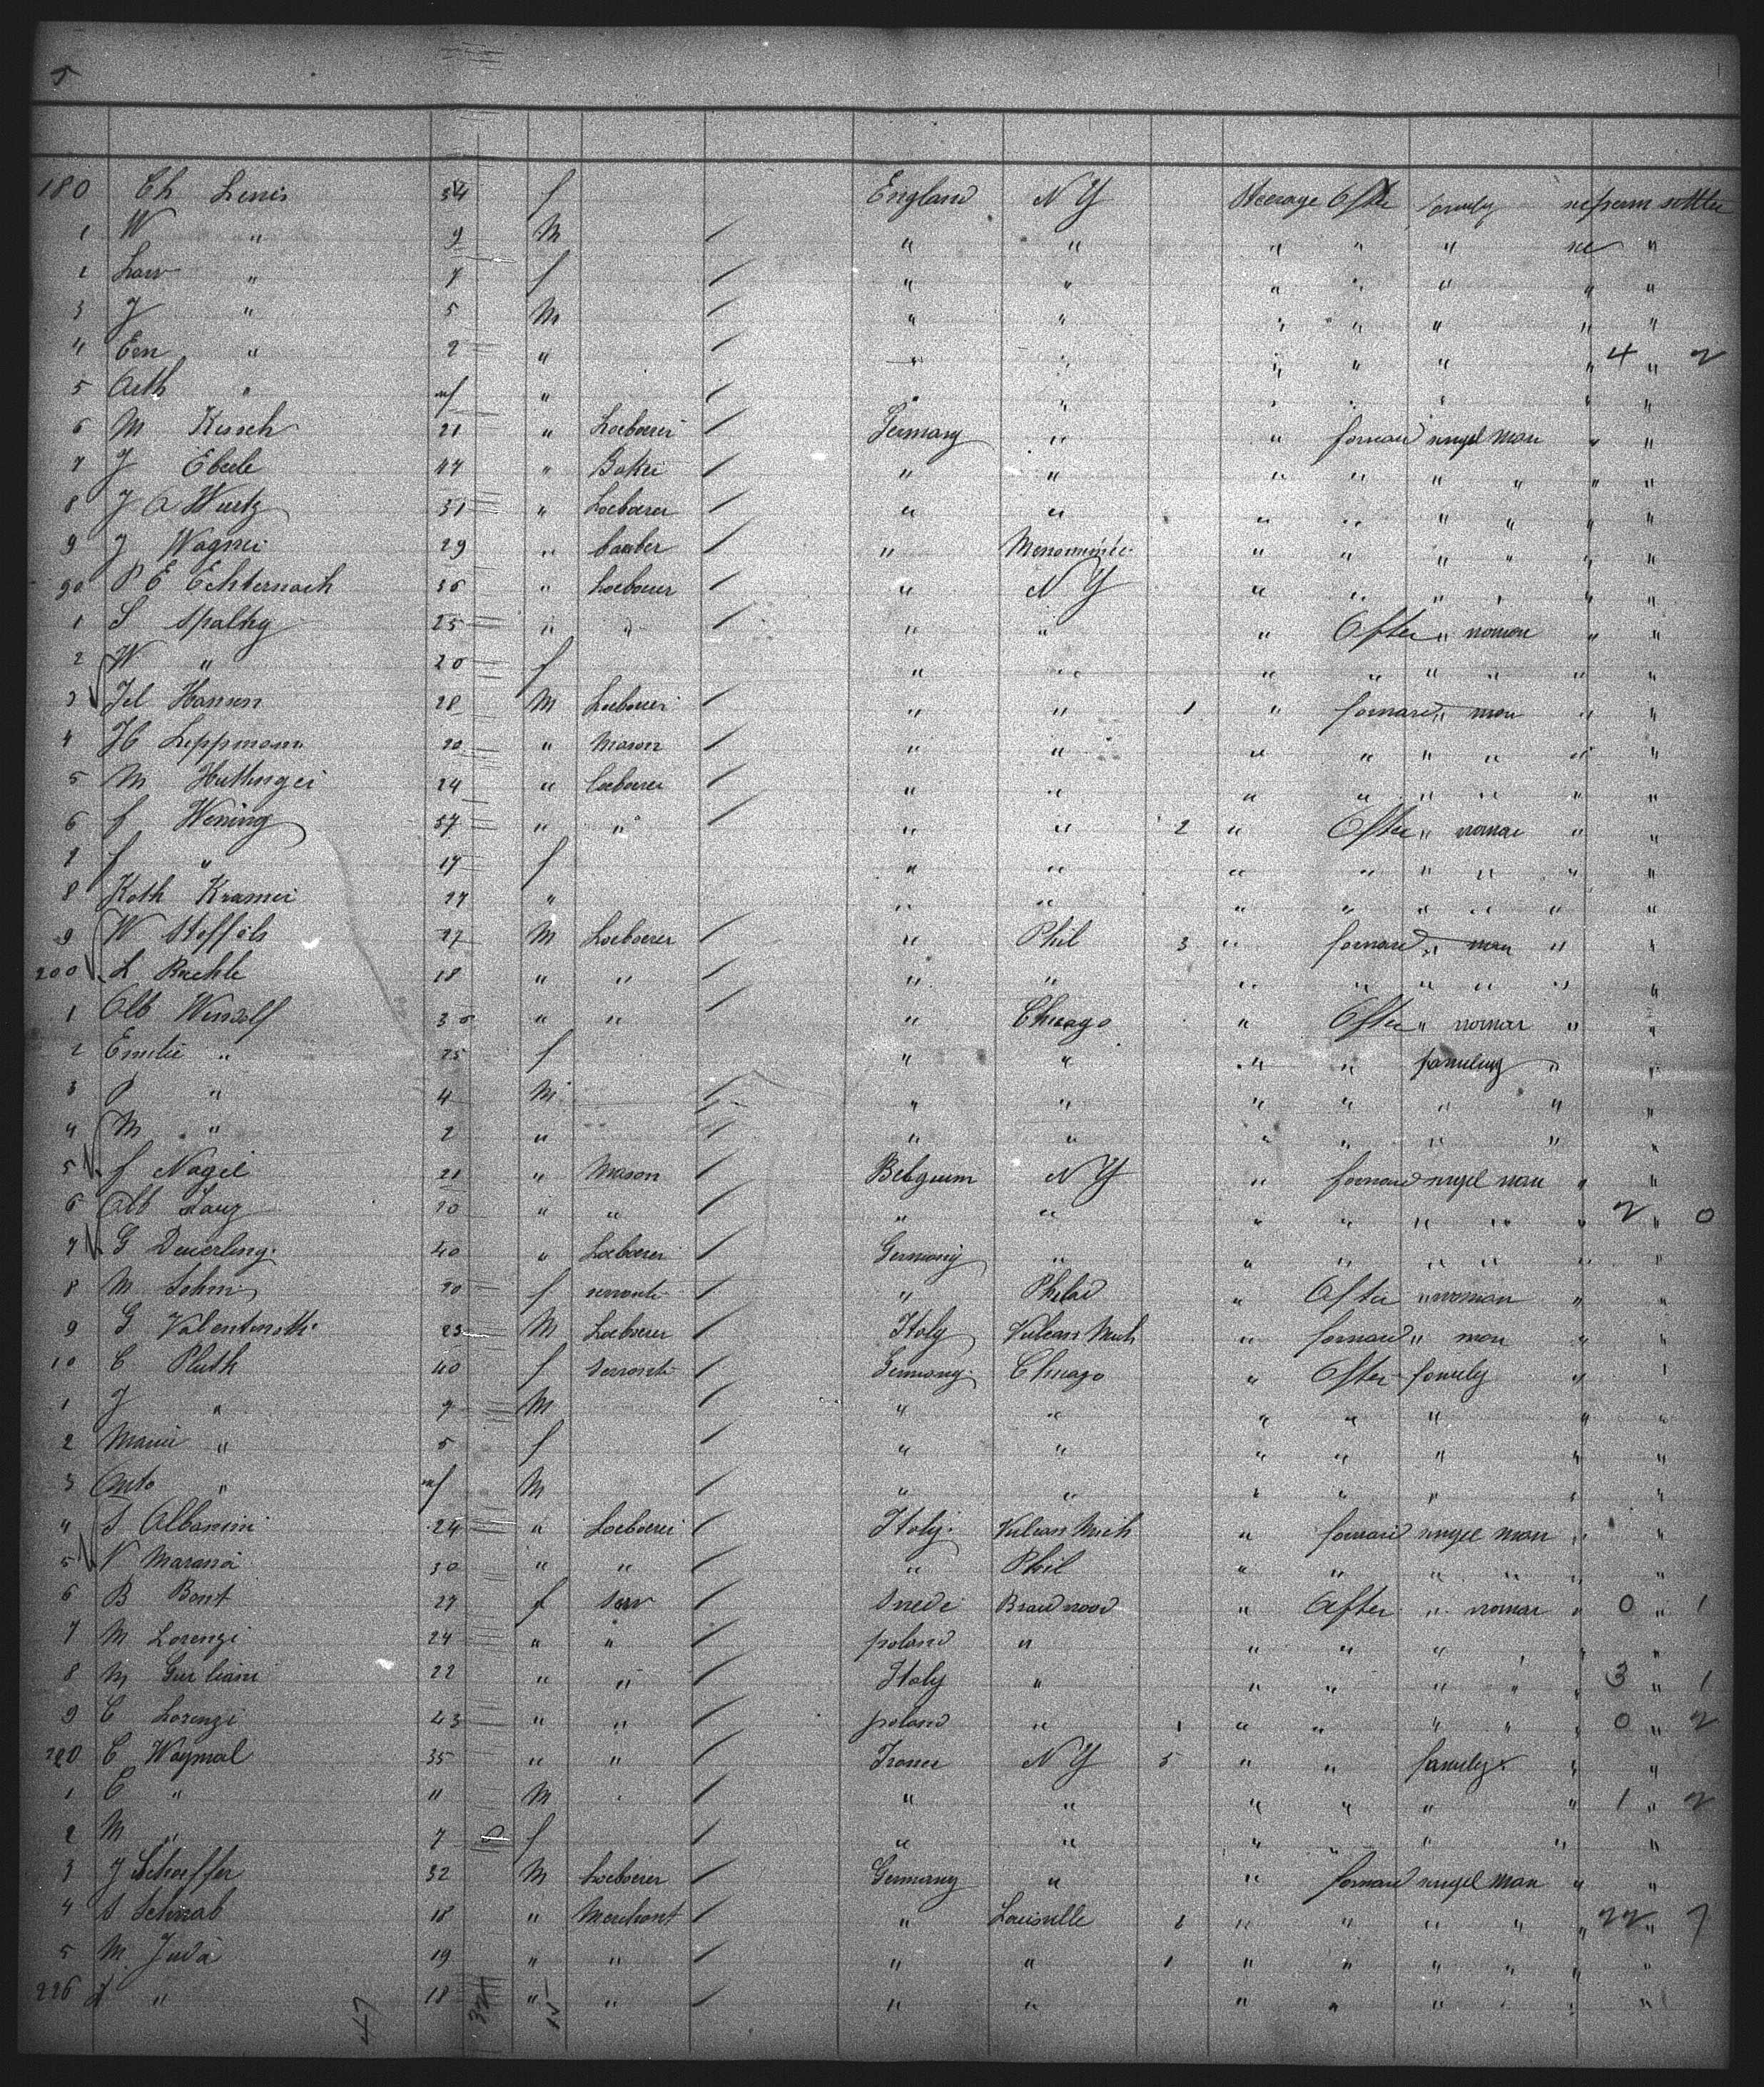 5
180 Ch Lenis 34 f England NY Steerage After family perm settler
1 W " 9 M / " " " " " "
2 " 7 f / " " " " " " "
3 J " 5 M / " " " " " " "
4 " 2 " / " " " " " " 4 " 2
5 Arth " inf " / " " " " " " "
6 M Kirsch 21 " Laeborer / Germany " " forward singel man " "
7 J Eberle 47 " Baker / " " " " " " " "
8 J A Wurtz 31 " Laeborer / " " " " " " " "
9 J Wagner 29 " / " Menominee " " " " " "
90 P E Echternach 36 " Laeborer / " NY " " " " " "
1 S Spalky 25 " " / " " " After " woman " "
2 W " 20 f " " " " " " " "
3 Hansen 28 M Laeborer / " " 1 " forward " man " "
4 H Leppmann 20 " Mason / " " " " " " " "
5 M Huttinger 24 " Laeborer / " " " " " " " "
6 f Wening 37 " " / " " 2 " After " woman " "
7 f " 17 f " " " " " " " "
8 Kath Kramer 27 " " " " " " " " "
9 W Stoffels 27 M Laeborer / " Phil 3 " forward " man " "
200 L Buehle 18 " " / " " " " " " " "
1 Alb Wensolf 30 " " / " Chicago " After " woman " "
2 Emilie " 25 f " " " " family " "
3 P " 4 M / " " " " " " "
4 M " 2 " / " " " " " " "
5 f Nagel 21 " Mason / Belgium NY " forward singel man " "
6 Alb Lang 20 " " / " " " " " " " 2 " 0
7 G Deuerling 40 " Laeborer / Germany " " " " " " "
8 M Sohm 20 f servant / " Philad " After " woman " "
9 G Valentinotti 23 M Laeborer / Italy Vulcan Mich " forward " man " "
10 C Pluth 40 f servant / Germany Chicago " After family "
1 J " 9 M / " " " " " " "
2 Marie " 5 f / " " " " " " "
3 Anto " inf M / " " " " " " "
4 S Albanini 24 " Laeborer / Italy Vulcan Mich " forward singel man " "
5 V Marana 30 " " / " Phil " " " " " "
6 B Bont 27 f Serv / Swede Braidwood " After " woman " 0 " 1
7 M Lorenzi 24 " " / poland " " " " " " "
8 M Giuliani 22 " " / Italy " " " " " " 3 " 1
9 C Lorenzi 23 " " / poland " 1 " " " " " 0 " 2
220 C Waymal 35 " " / France NY 5 " " family " "
1 C " 11 M / " " " " " " 1 " 2
2 M " 7 f / " " " " " " "
3 J Schaeffer 32 M Laeborer / Germany " " forward singel man " "
4 S Schwab 18 " Merchant / " Louisville " " " " " 22 " 7
5 M Juda 19 " " / " " 1 " " " " " "
226 " 18 " " / " " " " " " " "
47 32 15